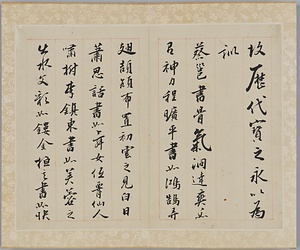 故歷代寶之永以為
訓
蔡邕書骨氣洞達爽如
有神力程曠平書如鴻鵠弄
翅頡頏布置初雲之見白日
蕭思話書如舞女低腰仙人
嘯樹李鎮東書如芙蓉之
出水文彩如鏤金桓玄書如快